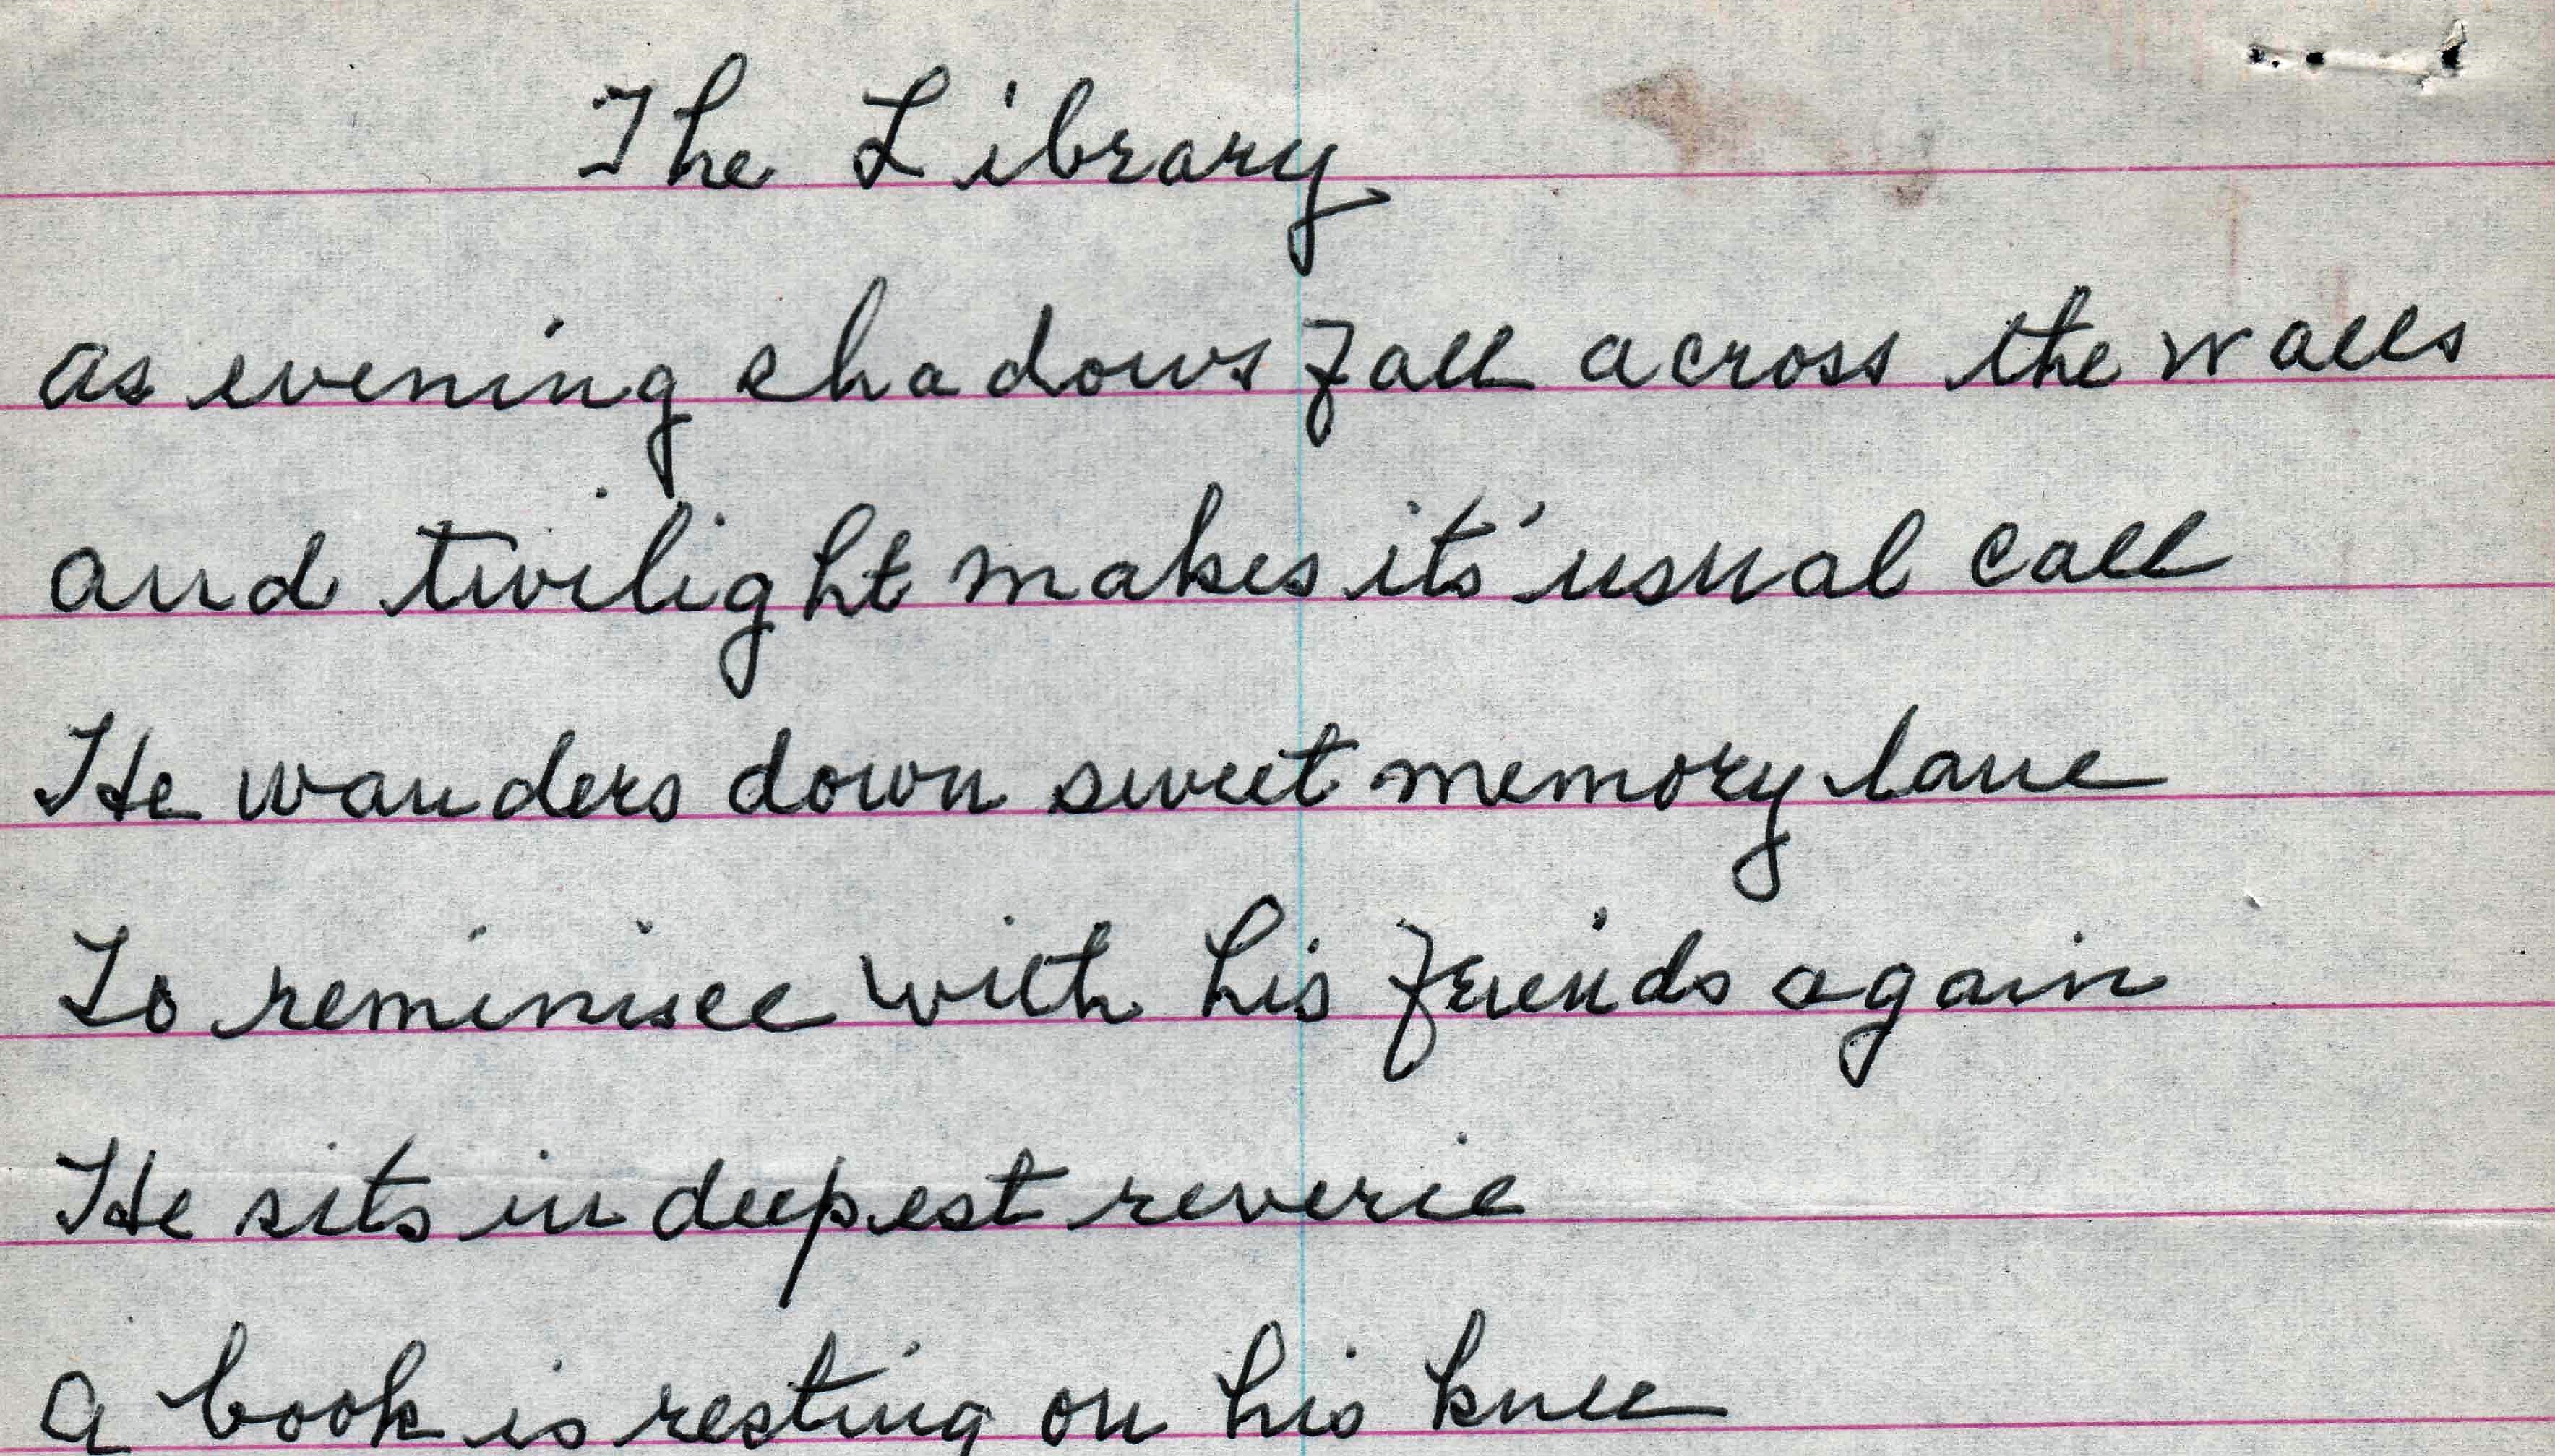 The Library
As evening shadows fall across the walls
and twilight makes its' usual call
He wanders down sweet memory lane
To reminisce with his friends again
He sits in deepest reverie
A book is resting on his knee